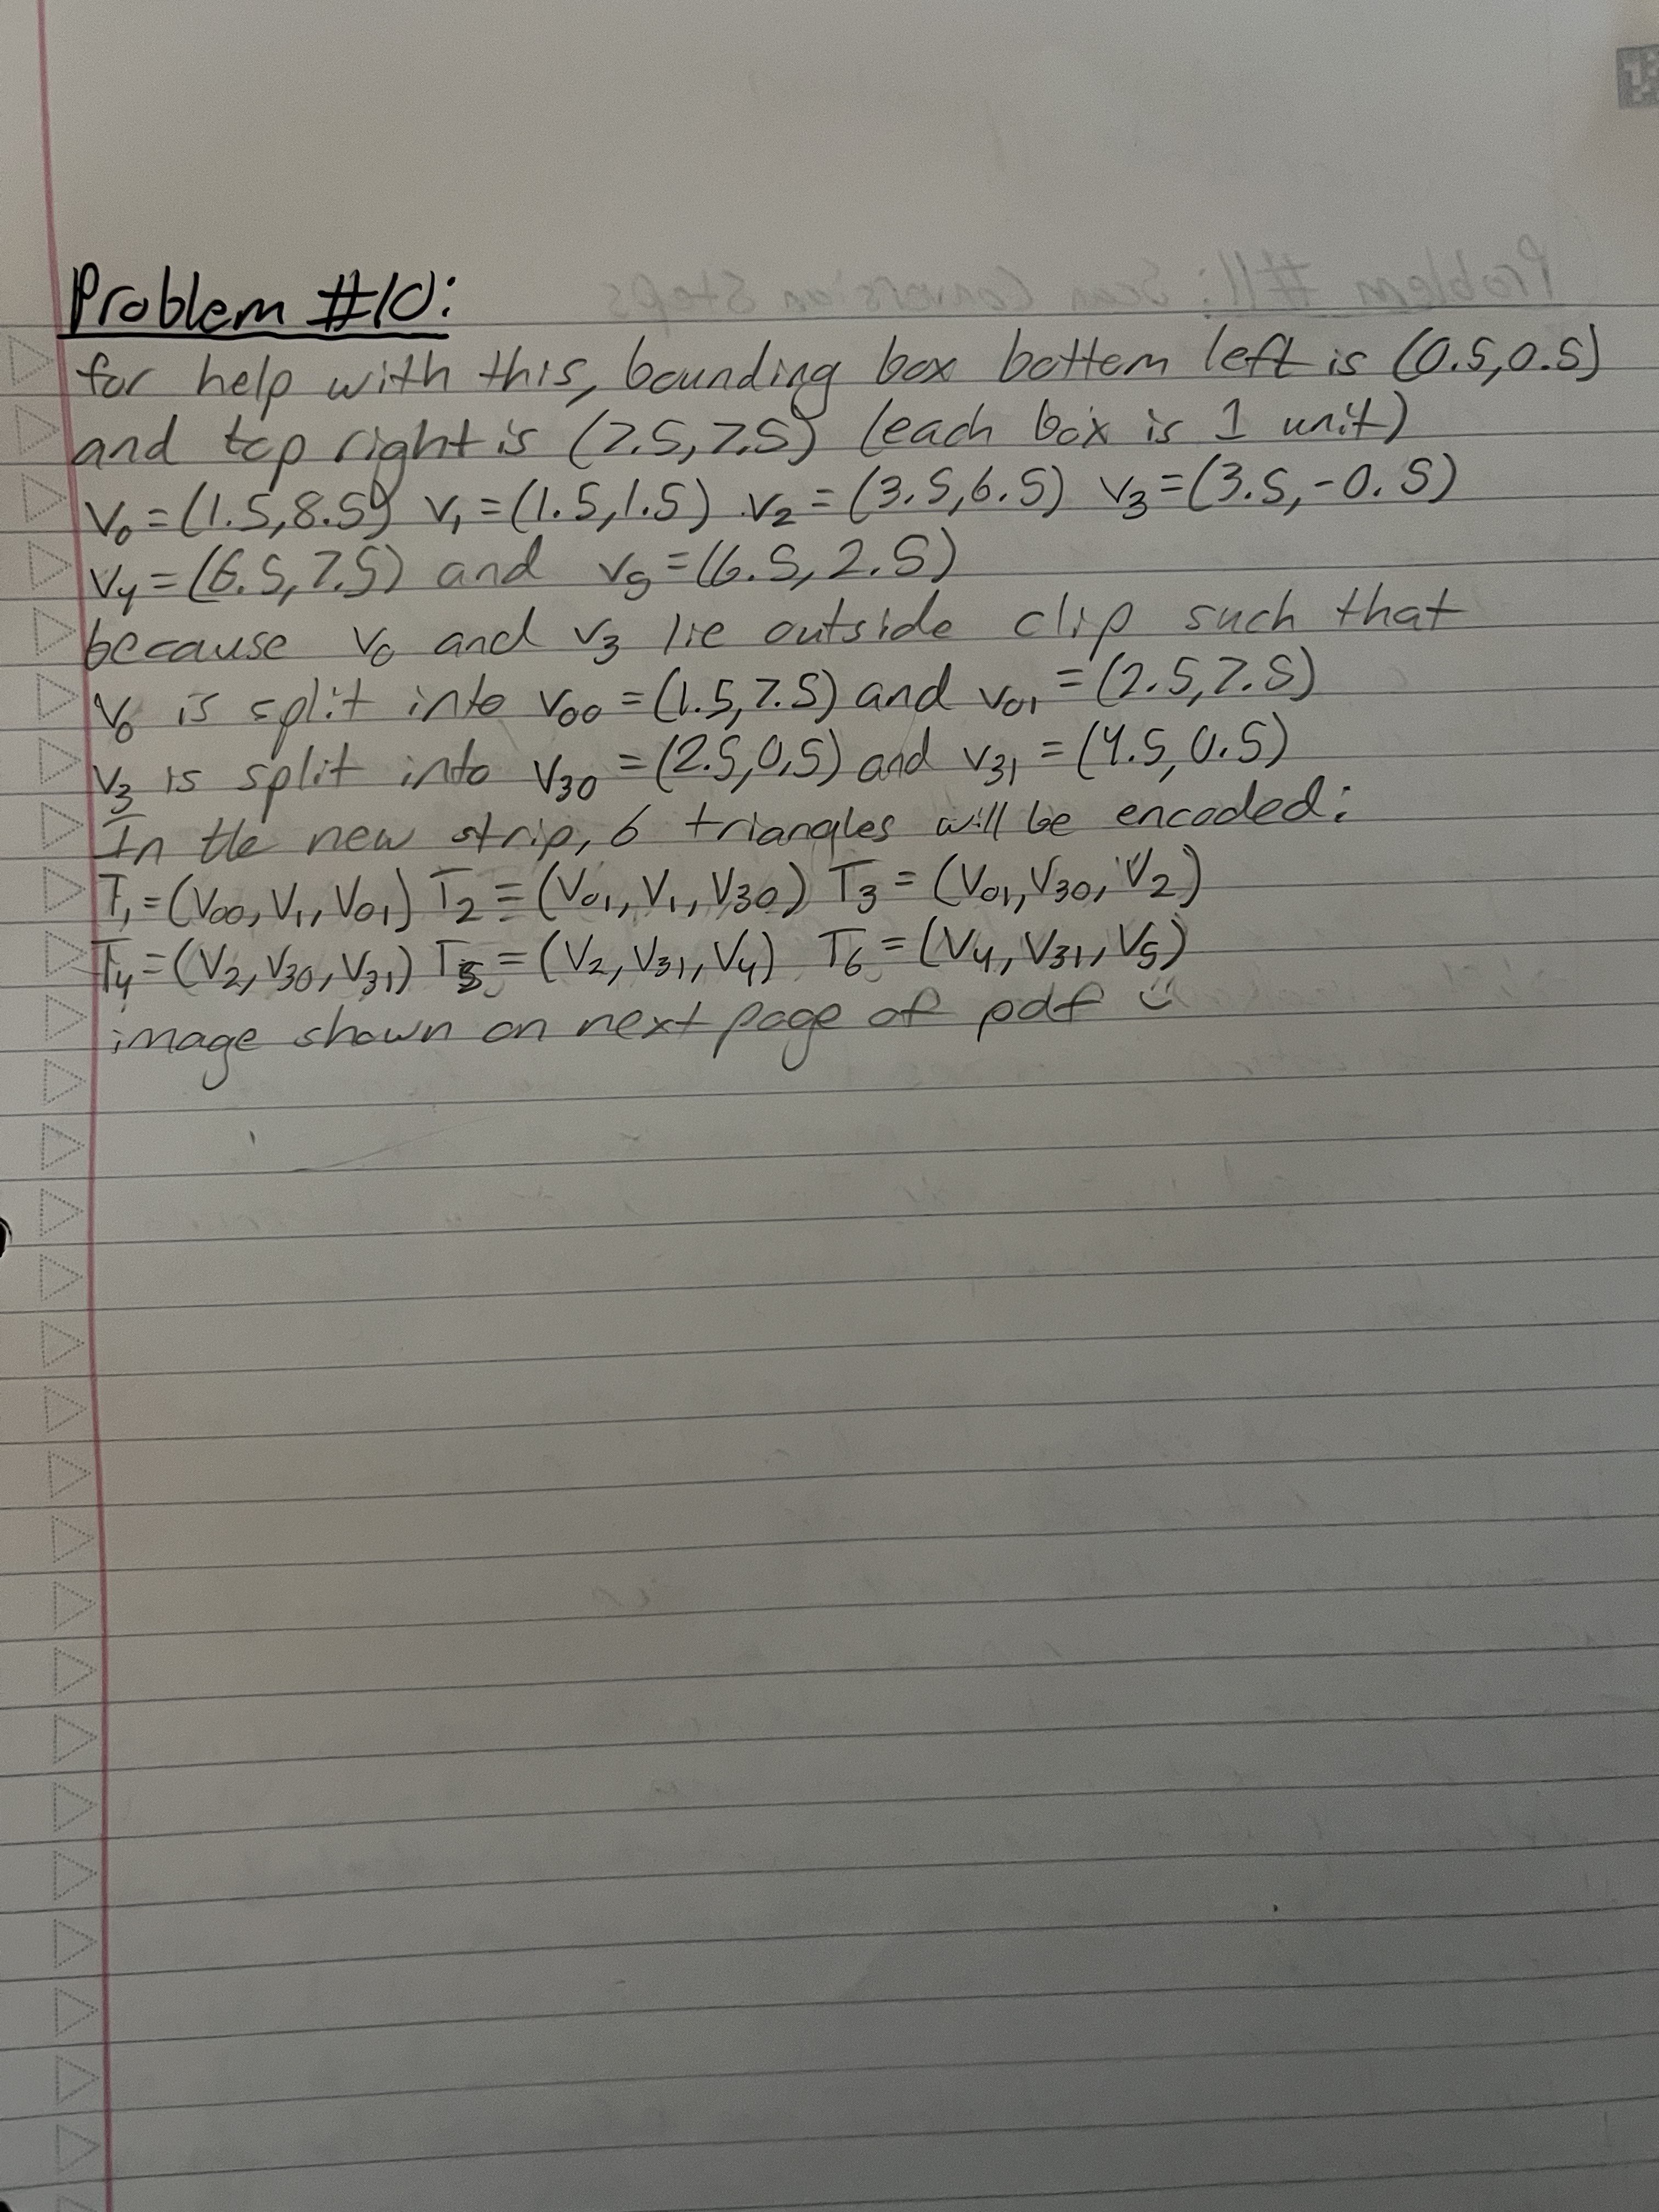 Problem #10:
for help with this, bounding box bottem left is (0.5,0.5)
and top right is (7.5,7.5) (each box is 1 unit)
V₀=(1.5,8.5) V₁=(1.5,1.5) V₂=(3.5,6.5) V₃=(3.5,-0.5)
V₄=(6.5,7.5) and V₅=(6.5,2.5)
because V₀ and V₃ lie outside clip such that
V₀ is split into V₀₀=(1.5,7.5) and V₀₁=(2.5,7.5)
V₃ is split into V₃₀=(2.5,0.5) and V₃₁=(4.5,0.5)
In the new strip, 6 triangles will be encoded:
T₁=(V₀₀,V₁,V₀₁) T₂=(V₀₁,V₁,V₃₀) T₃=(V₀₁,V₃₀,V₂)
T₄=(V₂,V₃₀,V₃₁) T₅=(V₂,V₃₁,V₄) T₆=(V₄,V₃₁,V₅)
image shown on next page of pdf
Problem #11: Scan Conversion Steps